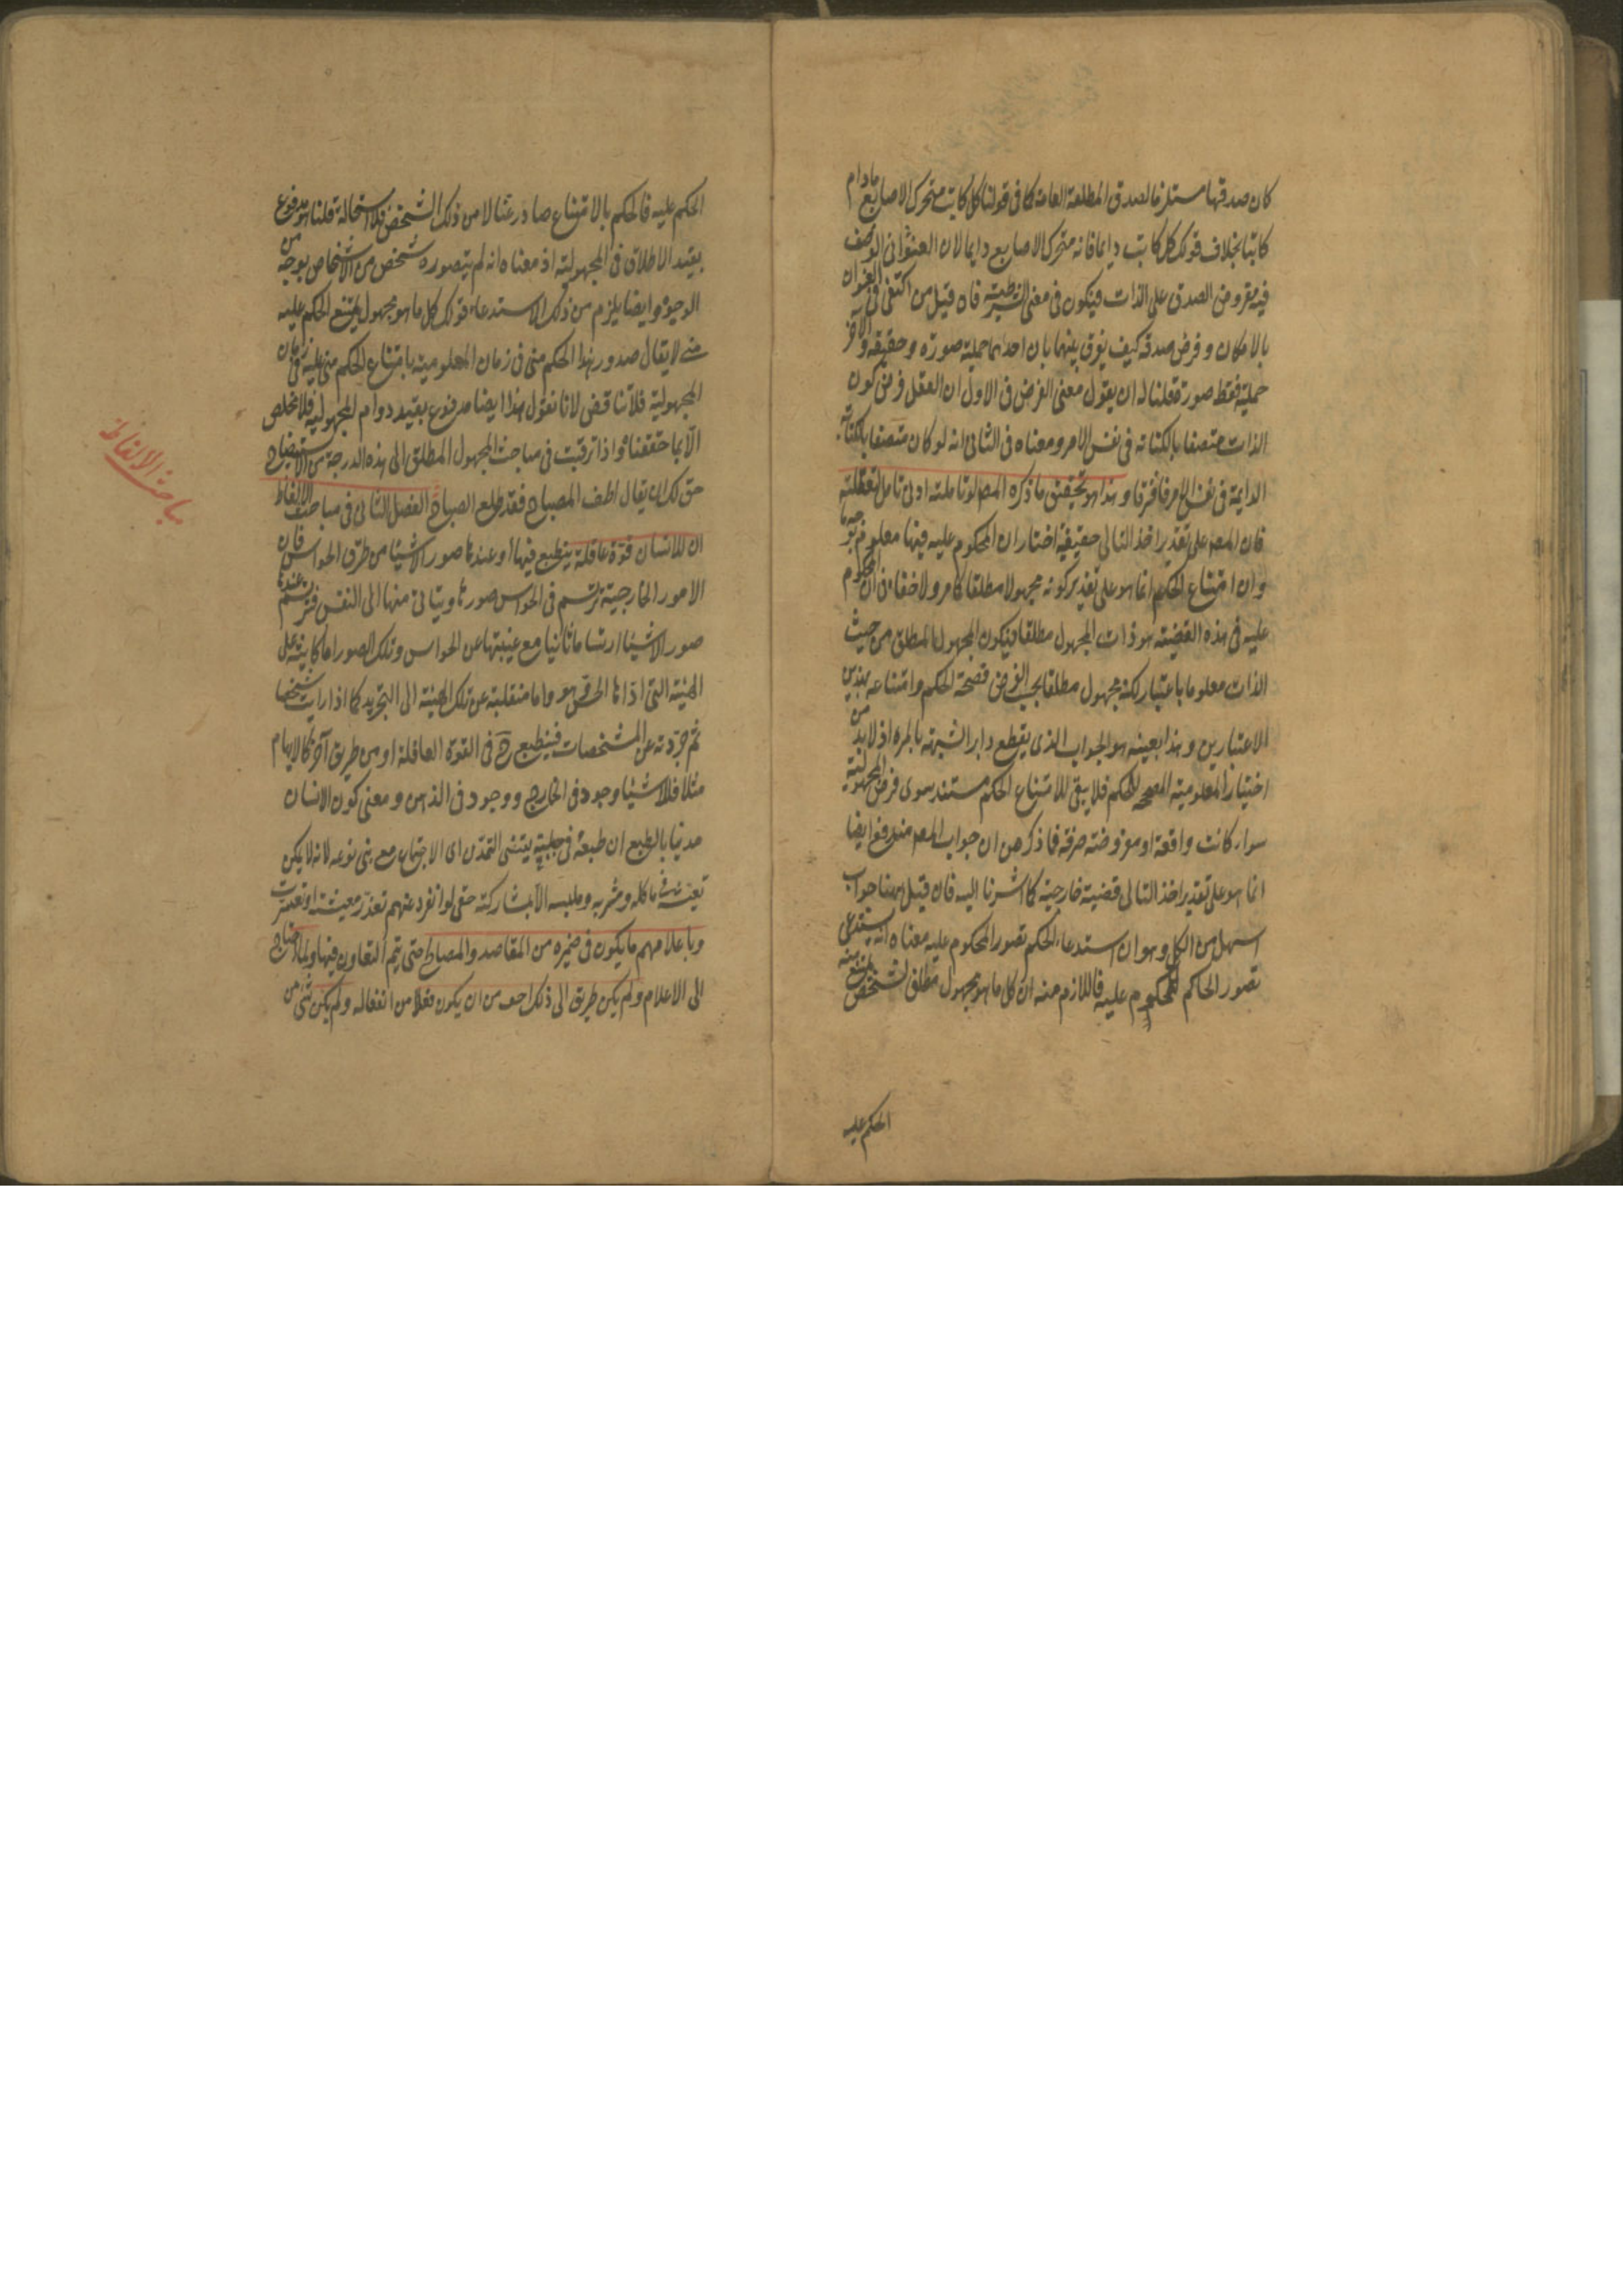 كان صدقها مستلزما لصدق المطلقة العامة كما فى قولنا كل كاتب متحرك الاصابع مادام
كاتبا بخلاف قولك كل كاتب دايما فانه متحرك الاصابع دايما لان العنوانى الوصف
فيه مفروض الصدق على الذات فيكون فى معنى الشرطية فان قيل من اكتفى فى العنوان
بالامكان وفرض صدقه كيف يفرق بينهما بان احدهما حملية صورة وحقيقة والآخر
حملية فقط صورة قلنا له ان يقول معنى الفرض فى الاول ان العقل فرض كون
الذات متصفا بالكتابة فى نفس الامر ومعناه فى الثانى انه لو كان متصفا بالكتابة
الدايمة فى نفس الامر فافترقا وهذا هو تحقيق ما ذكره المصـ لو تاملته ادنى تامل لتعقلته
فان المصـ على تقدير اخذ التالى حقيقية اختار ان المحكوم عليه فيها معلوم بوجه ما
وان امتناع الحكم انما هو على تقدير كونه مجهولا مطلقا كما مر ولا خفاء فى ان المحكوم
عليه فى هذه القضية هو ذات المجهول مطلقا فيكون المجهول المطلق من حيث
الذات معلوما باعتبار لكنه مجهول مطلقا بحسب الفرض فصحة الحكم وامتناعه بهذين
الاعتبارين وهذا بعينه هو الجواب الذى يقطع دابر الشبهة بالمرة اذ لابد من
اختيار المعلومية المصححة للحكم فلا يبقى لامتناع الحكم مستند سوى فرض المجهولية
سواء كانت واقعة او مفروضة صرفة فما ذكر من ان جواب المصـ مندفع ايضا
انما هو على تقدير اخذ التالى قضية خارجية كما اشرنا اليه فان قيل ههنا جواب
اسهل من الكل وهو ان استدعاء الحكم تصور المحكوم عليه معناه انه يستدعى
تصور الحاكم للمحكوم عليه فاللازم منه ان كل ما هو مجهول مطلق لشخص يمتنع منه
الحكم عليه
الحكم عليه فالحكم بالامتناع صادر عنا لا من ذلك الشخص فلا استحالة قلنا هو مدفوع
بقيد الاطلاق فى المجهولية اذ معناه انه لم يتصوره شخص من الاشخاص بوجه من
الوجوه وايضا يلزم من ذلك الاستدعاء قولك كل ما هو مجهول لى يمتنع الحكم عليه
منى لا يقال صدور هذا الحكم منى فى زمان المعلومية بامتناع الحكم منى عليه فى زمان
المجهولية فلا تناقض لانا نقول هذا ايضا مدفوع بقيد دوام المجهولية فلا مخلص
الا بما حققناه واذا ترقيت فى مباحث المجهول المطلق الى هذه الدرجة من الاستيضاح
حق لك ان يقال اطف المصباح فقد طلع الصباح الفصل الثانى فى مباحث الالفاظ
ان للانسان قوة عاقلة ينطبع فيها او عندها صور الاشياء من طرق الحواس فان
الامور الخارجية ترتسم فى الحواس صورها ويتأتى منها الى النفس فترتسم عندها
صور الاشياء ارتساما ثانيا مع غيبتها عن الحواس وتلك الصور اما كاينة على
الهيئة التى اداها الحس هو واما منقلبة عن تلك الهيئة الى التجريد كما اذا رايت شخصا
ثم جردته عن المشخصات فينطبع رح فى القوة العاقلة او من طريق آخر كالايهام
مثلا فللاشياء وجود فى الخارج ووجود فى الذهن ومعنى كون الانسان
مدنيا بالطبع ان طبعه فى جبلته يقتضى التمدن اى الاجتماع مع بنى نوعه لانه لا يمكن
تعيشه فى ماكله ومشربه وملبسه الا بمشاركته حتى لو انفرد عنهم تعذر معيشته او تعسرت
وباعلامهم ما يكون فى ضميره من المقاصد والمصالح حتى يتم التعاون فيها ولما احتاج
الى الاعلام ولم يكن طريق الى ذلك اخف من ان يكون فعلا من افعاله ولم يكن شئ من
مباحث الالفاظ